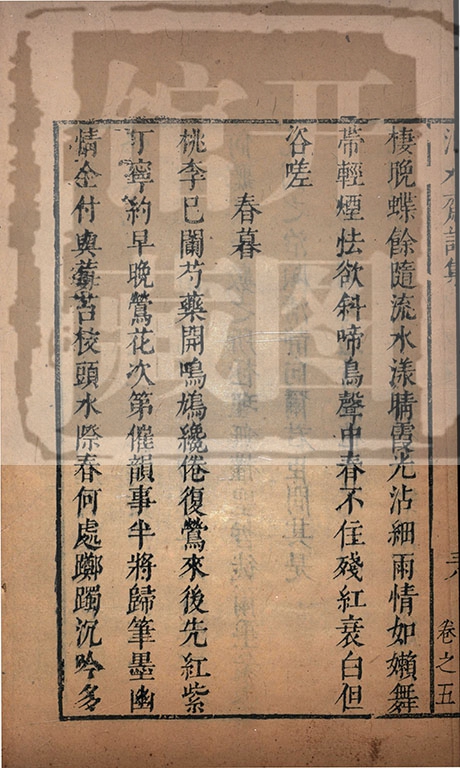 棲晚蝶餘隨流水漾晴霞光沾細雨情如嬾舞
帶輕煙怯欲斜啼鳥聲中春不住殘紅衰白但
咨嗟
春暮
桃李已闌芍藥開鳴鳩纔倦復鶯來後先紅紫
丁寧約早晚鶯花次第催韻事半將歸筆墨幽
情全付與莓苔枝頭水際春何處躑躅沉吟多
卷之五